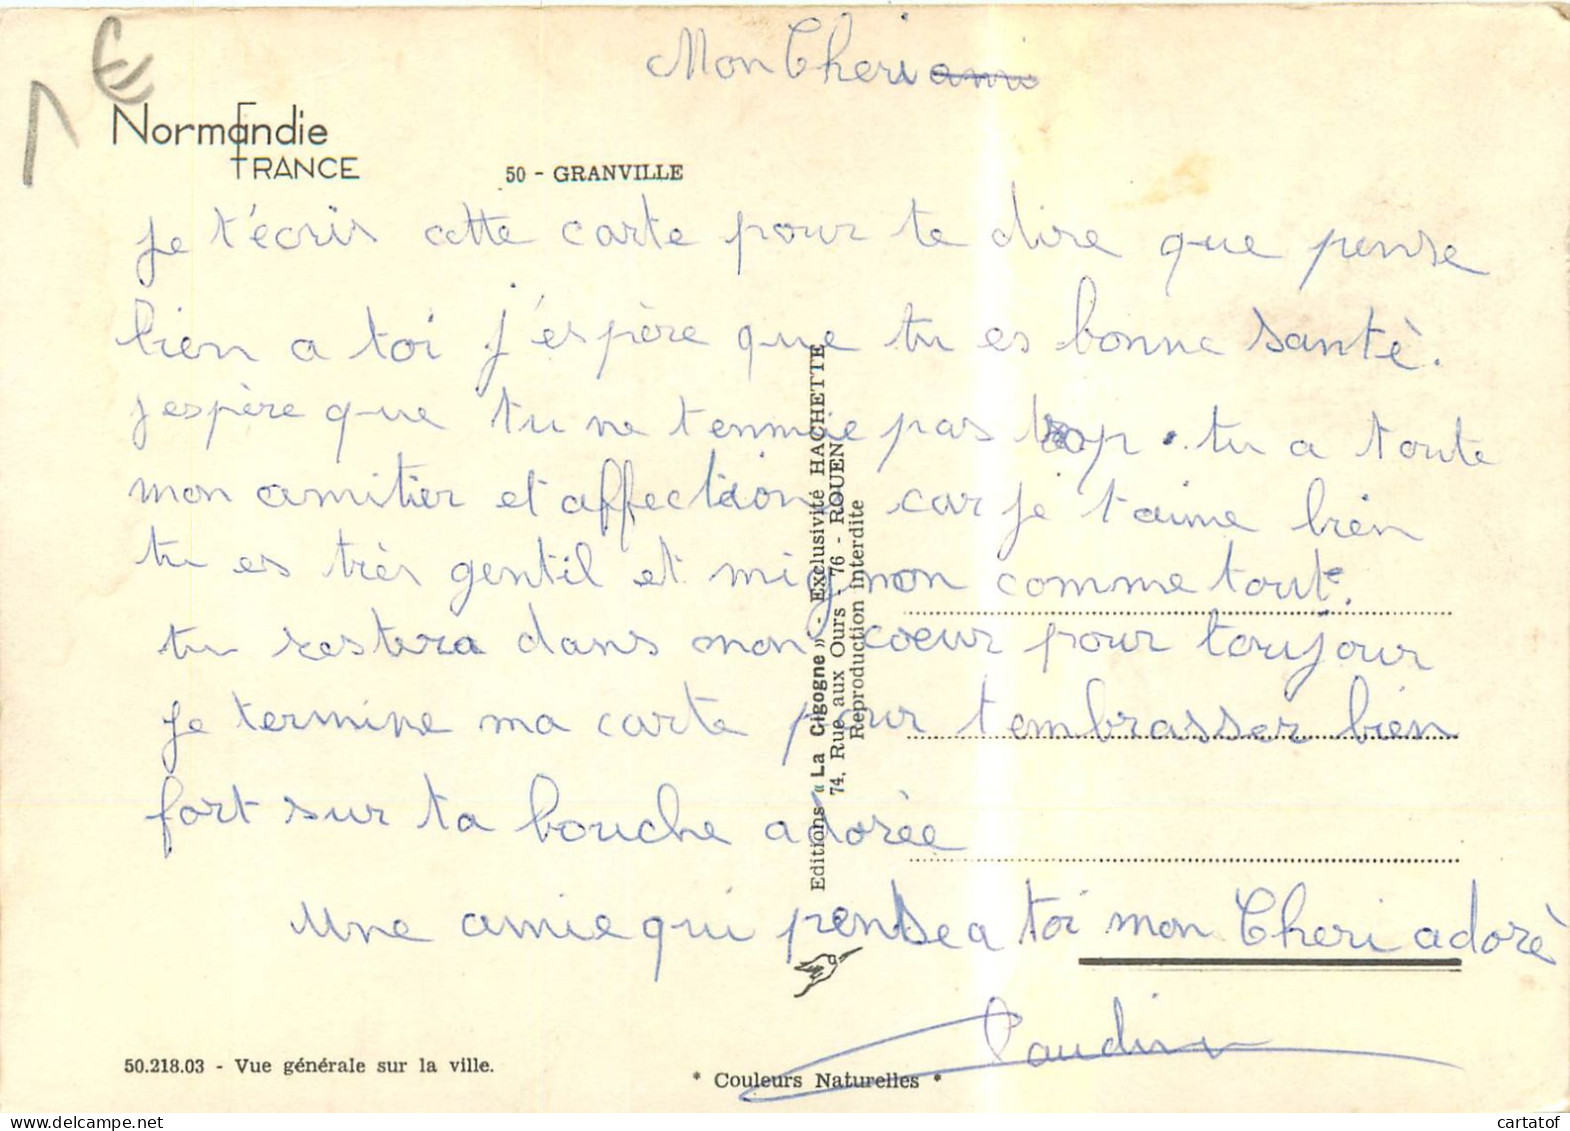 1 €
Mon Cheri
Normandie
FRANCE
50 - GRANVILLE
je t'écris cette carte pour te dire que pense
bien a toi j'espère que tu es bonne santè.
j espère que tu ne t ennuie pas trop . tu a toute
mon amitier et affection car je t aime bien
tu es très gentil et mignon comme tout.
tu restera dans mon coeur pour toujour
je termine ma carte pour t embrasser bien
fort sur ta bouche adorèe
Une amie qui pense a toi mon Cheri adorè
50.218.03 - Vue générale sur la ville.
* Couleurs Naturelles *
Editions « La Cigogne » - Exclusivité HACHETTE
74, Rue aux Ours - 76 - ROUEN
Reproduction interdite
cartatof